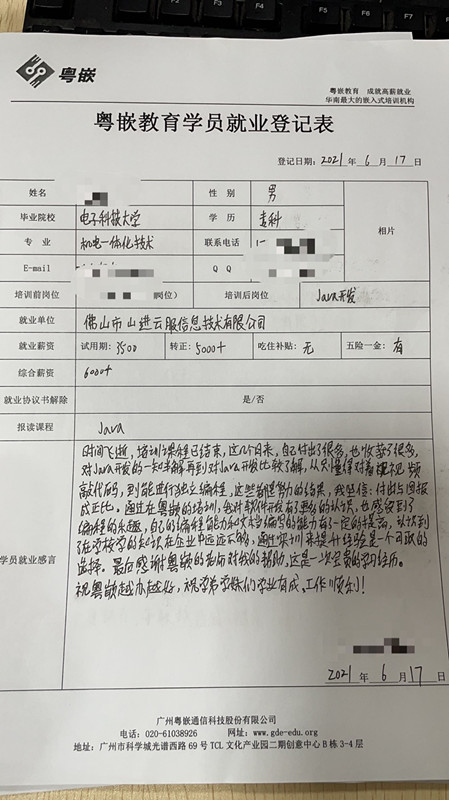 粤嵌
粤嵌教育 成就高薪就业
华南最大的嵌入式培训机构
粤嵌教育学员就业登记表
登记日期：2021年 6 月 17 日
姓名 性 别 男
毕业院校 电子科技大学 学 历 专科 相片
专 业 机电一体化技术 联系电话
E-mail Q Q
培训前岗位 岗位） 培训后岗位 Java开发
就业单位 佛山市山进云服信息技术有限公司
就业薪资 试用期：3500 转正：5000+ 吃住补贴：无 五险一金：有
综合薪资 6000+
就业协议书解除 是/否
报读课程 Java
学员就业感言
时间飞逝，培训课程已结束，这几个月来，自己付出了很多，也收获了很多，
对Java开发的一知半解再到对Java开发比较了解，从只懂得对着视频
敲代码，到能进行独立编程，这些都是努力的结果，我坚信：付出与回报
成正比。通过在粤嵌的培训，我对软件开发有了更多的认识，也感受到了
编程的乐趣，自己的编程能力和文档编写的能力有了一定的提高，认识到
了在学校学的知识在企业中远远不够，通过实训来提升经验是一个可取的
选择。最后感谢粤嵌的老师对我的帮助，这是一次宝贵的学习经历。
祝粤嵌越办越好，祝学弟学妹们学业有成，工作顺利！
2021 年 6 月 17 日
广州粤嵌通信科技股份有限公司
电话：020-61038926 网址：www.gde-edu.org
地址：广州市科学城光谱西路 69 号 TCL 文化产业园二期创意中心 B 栋 3-4 层